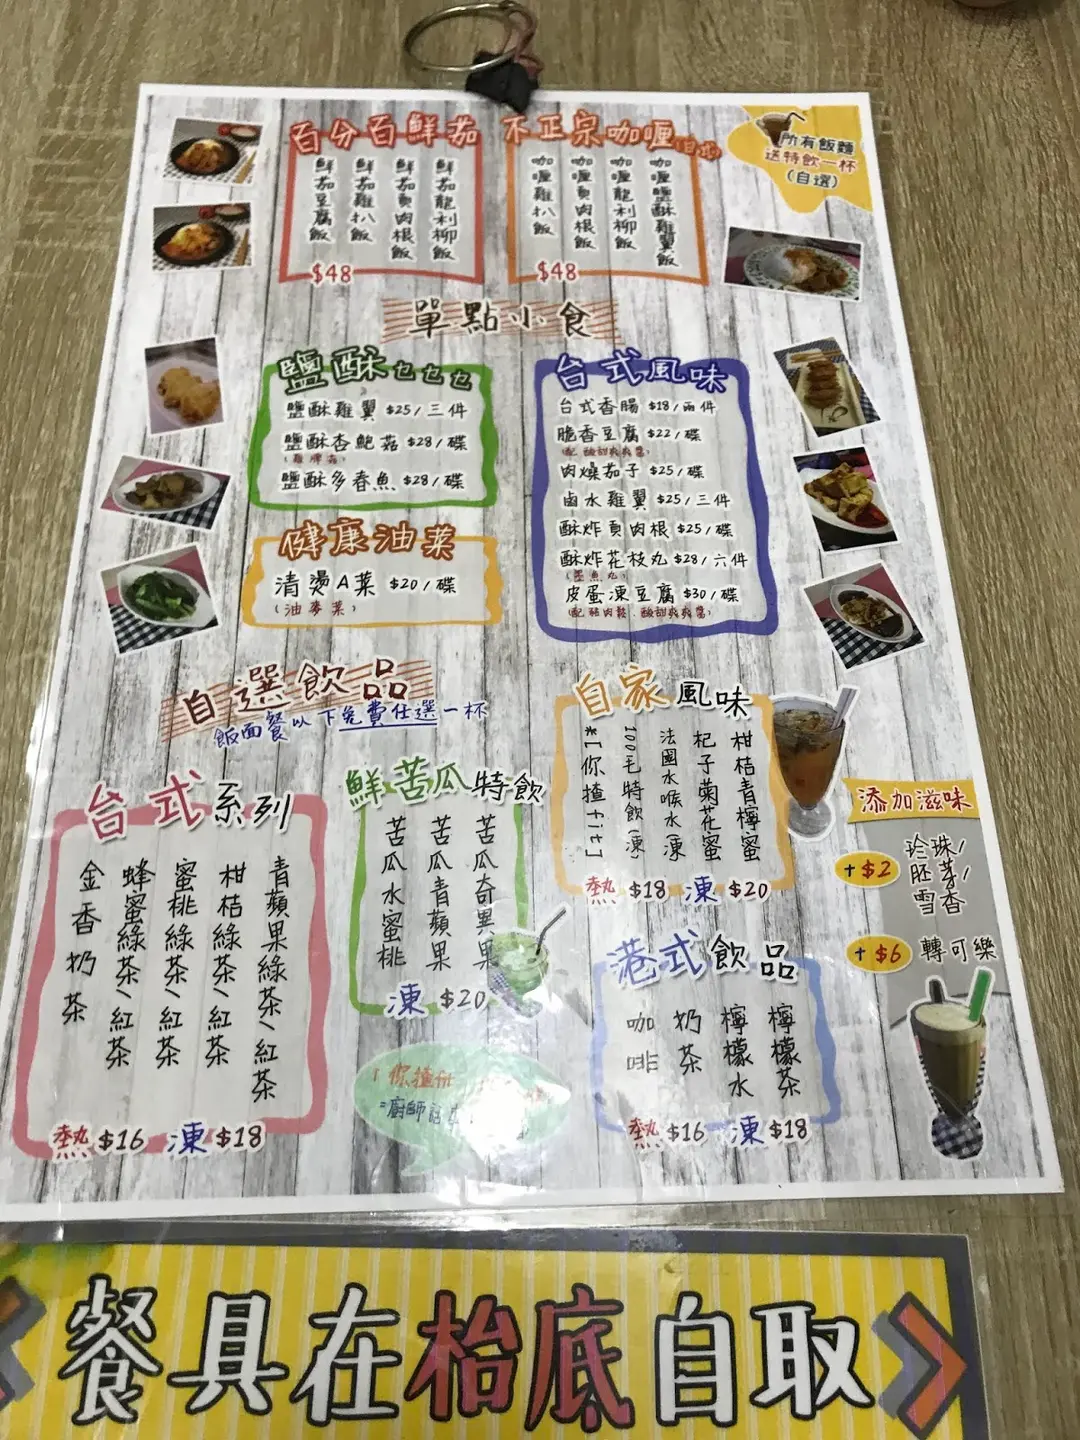 百分百鮮茄
鮮茄豆腐飯
鮮茄雞扒飯
鮮茄頁肉根飯
鮮茄龍利柳飯
$48
不正宗咖喱(日式)
咖喱雞扒飯
咖喱頁肉根飯
咖喱龍利柳飯
咖喱鹽酥雞翼飯
$48
所有飯麵
送特飲一杯
(自選)
單點小食
鹽酥乜乜乜
鹽酥雞翼 $25/三件
鹽酥杏鮑菇 $28/碟
(雞脾菇)
鹽酥多春魚 $28/碟
健康油菜
清燙A菜 $20/碟
(油麥菜)
台式風味
台式香腸 $18/兩件
脆香豆腐 $22/碟
(配酸甜爽爽醬)
肉燥茄子 $25/碟
鹵水雞翼 $25/三件
酥炸頁肉根 $25/碟
酥炸花枝丸 $28/六件
(墨魚丸)
皮蛋凍豆腐 $30/碟
(配豬肉鬆、酸甜爽爽醬)
自選飲品
飯面餐以下免費任選一杯
台式系列
金香奶茶
蜂蜜綠茶/紅茶
蜜桃綠茶/紅茶
柑桔綠茶/紅茶
青蘋果綠茶/紅茶
熱 $16 凍 $18
鮮苦瓜特飲
苦瓜水蜜桃
苦瓜青蘋果
苦瓜奇異果
凍 $20
「你揸
=廚師
自家風味
*[你揸fit]
100毛特飲(凍)
法國水喉水(凍)
杞子菊花蜜
柑桔青檸蜜
熱 $18 凍 $20
港式飲品
咖啡
奶茶
檸檬水
檸檬茶
熱 $16 凍 $18
添加滋味
+$2 珍珠/
胚芽/
雪香
+$6 轉可樂
餐具在枱底自取